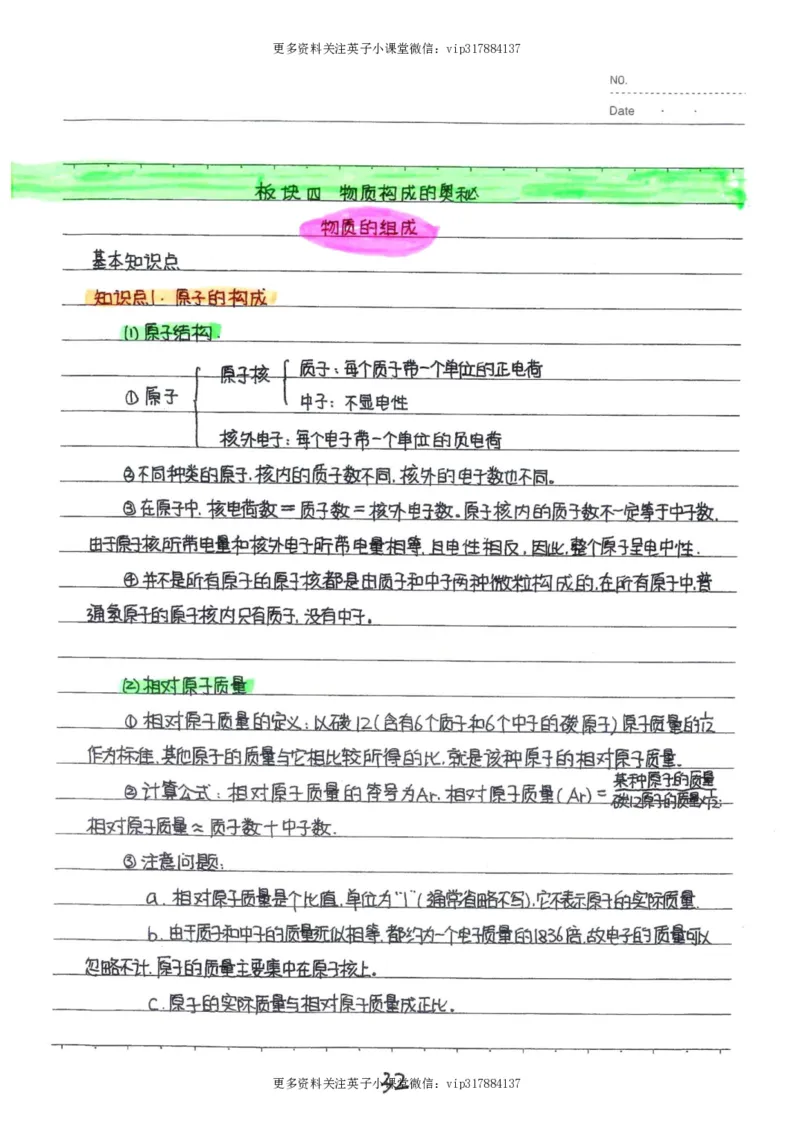 更多资料关注英子小课堂微信：vip317884137
NO.
Date · ·
板块四 物质构成的奥秘
物质的组成
基本知识点
知识点1. 原子的构成
(1)原子结构.
原子核 质子：每个质子带一个单位的正电荷
①原子 中子：不显电性
核外电子：每个电子带一个单位的负电荷
②不同种类的原子,核内的质子数不同,核外的电子数也不同。
③在原子中,核电荷数=质子数=核外电子数。原子核内的质子数不一定等于中子数,
由于原子核所带电量和核外电子所带电量相等,且电性相反,因此,整个原子呈电中性.
④并不是所有原子的原子核都是由质子和中子两种微粒构成的,在所有原子中,普
通氢原子的原子核内只有质子,没有中子。
(2)相对原子质量
①相对原子质量的定义：以碳12(含有6个质子和6个中子的碳原子)原子质量的1/12
作为标准,其他原子的质量与它相比较所得的比,就是该种原子的相对原子质量。
②计算公式：相对原子质量的符号为Ar.相对原子质量(Ar)=某种原子的质量/碳12原子的质量×1/12.
相对原子质量≈质子数+中子数.
③注意问题：
a.相对原子质量是个比值,单位为"1"(通常省略不写),它不表示原子的实际质量.
b.由于质子和中子的质量近似相等,都约为一个电子质量的1836倍,故电子的质量可以
忽略不计,原子的质量主要集中在原子核上。
c.原子的实际质量与相对原子质量成正比。
32
更多资料关注英子小课堂微信：vip317884137